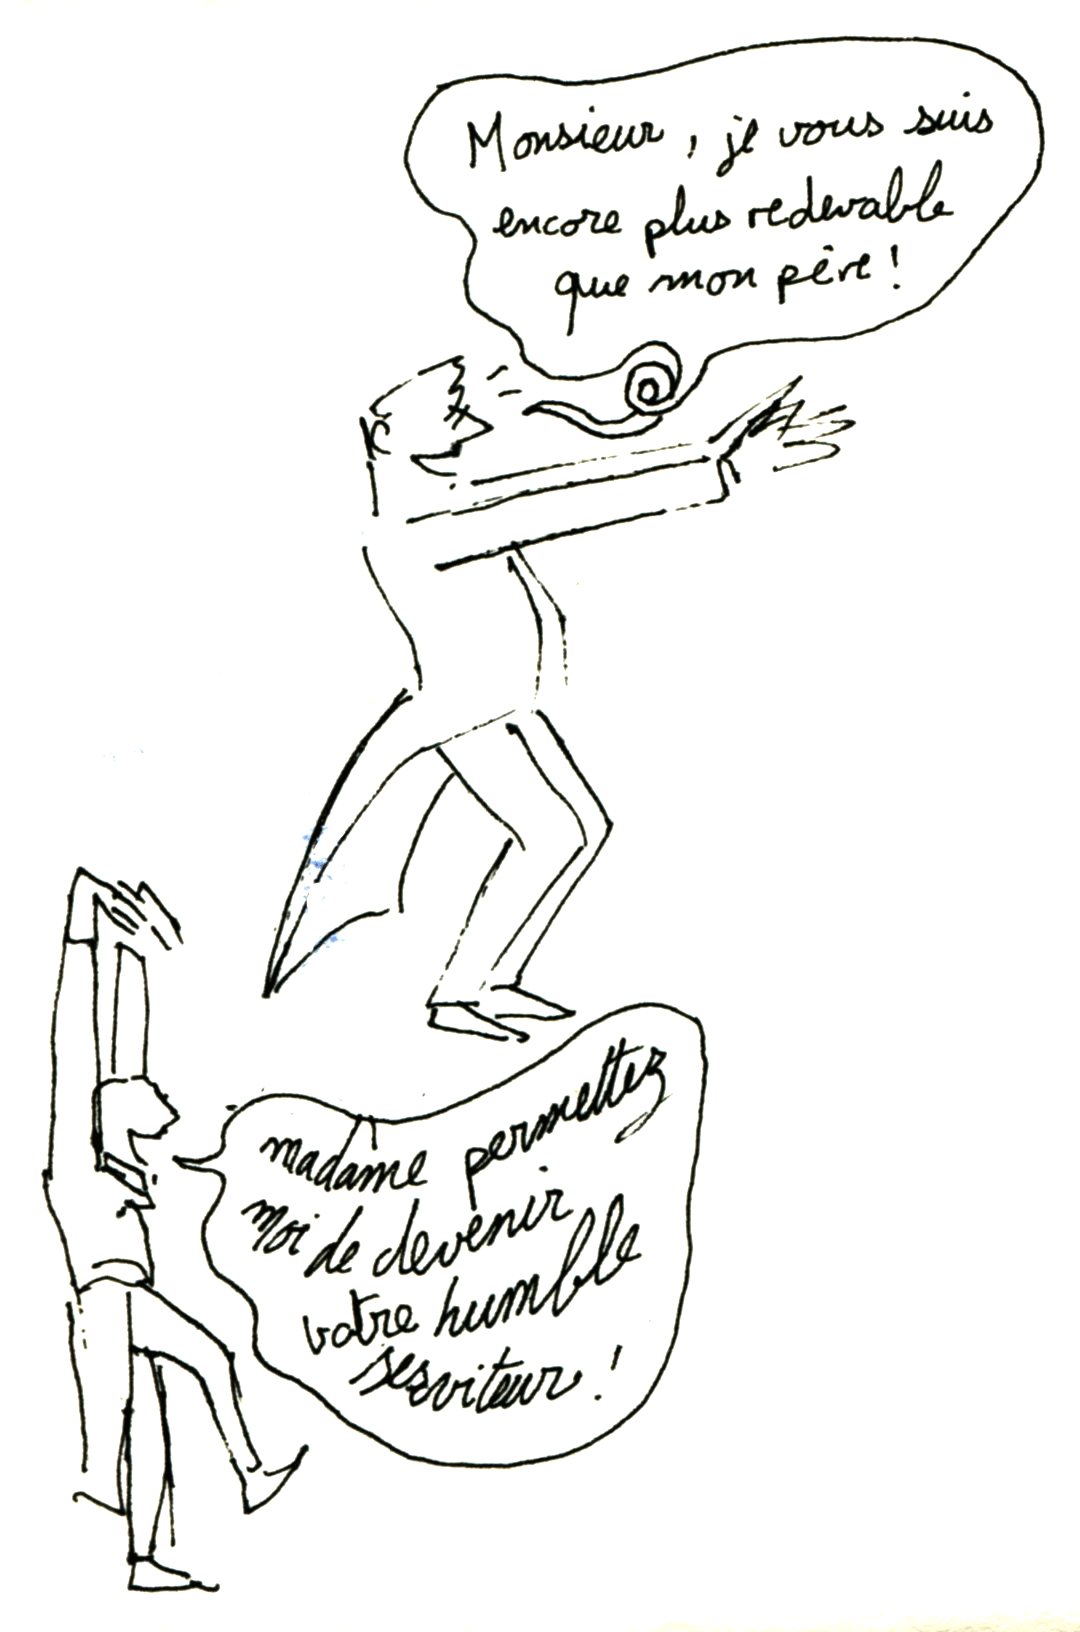 Monsieur, je vous suis
encore plus redevable
que mon père !
madame permettez
moi de devenir
votre humble
serviteur !